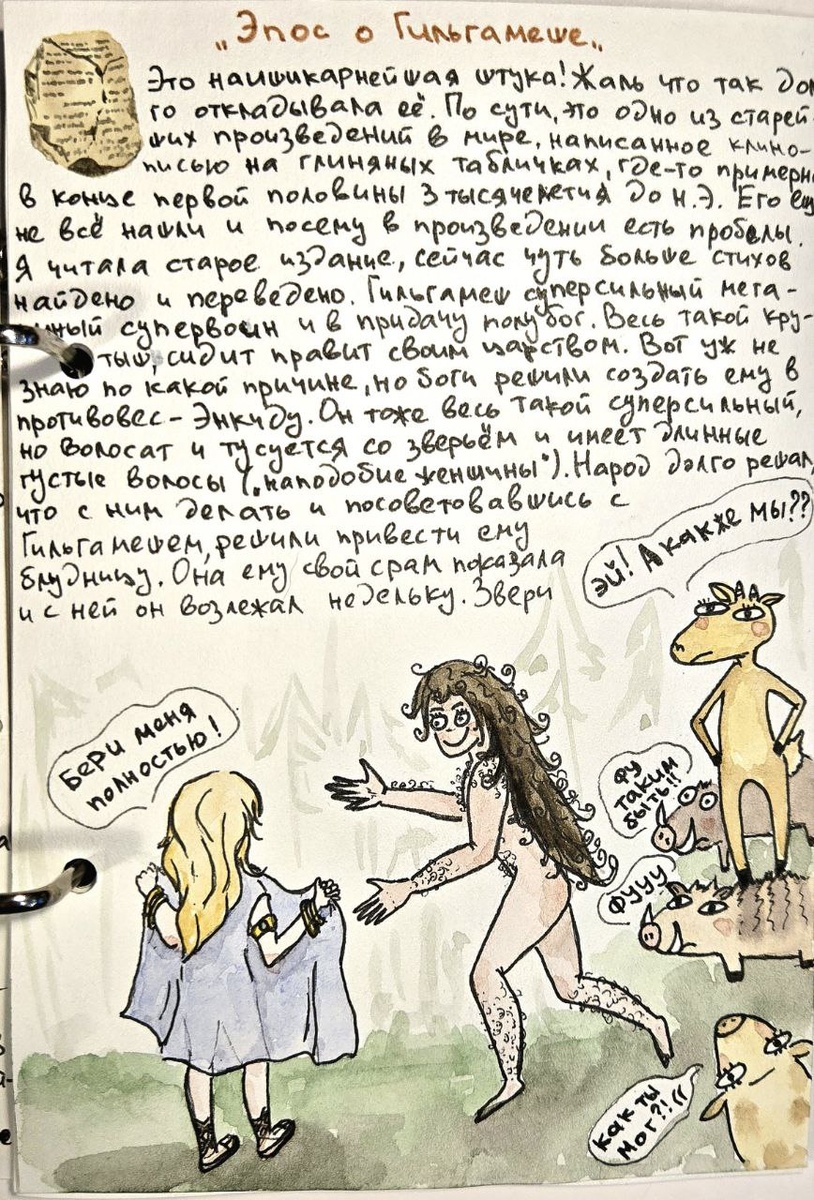 „Эпос о Гильгамеше„
Это наишикарнейшая штука! Жаль что так дол
го откладывала её. По сути, это одно из старей-
ших произведений в мире, написанное клино-
писью на глиняных табличках, где-то примерно
в конце первой половины 3 тысячелетия до н.э. Его ещ
не всё нашли и посему в произведении есть пробелы.
Я читала старое издание, сейчас чуть больше стихов
найдено и переведено. Гильгамеш суперсильный мега-
чный супервоин и в придачу полубог. Весь такой кру-
тыш, сидит правит своим царством. Вот уж не
знаю по какой причине, но боги решили создать ему в
противовес - Энкиду. Он тоже весь такой суперсильный,
но волосат и тусуется со зверьём и имеет длинные
густые волосы („наподобие женщины"). Народ долго решал,
что с ним делать и посоветовавшись с
Гильгамешем, решили привести ему
блудницу. Она ему свой срам показала
и с ней он возлежал недельку. Звери
Эй! А как же мы??
Бери меня
полностью!
Фу
таким
быть!!
Фууу
Как ты
мог?!((